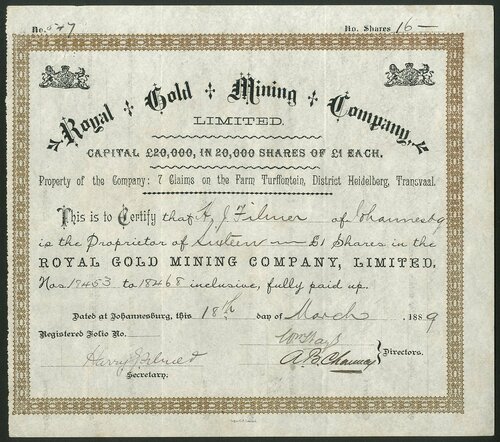 No. 527 No. Shares 16—
Royal Gold Mining Company,
LIMITED.
CAPITAL £20,000, IN 20,000 SHARES OF £1 EACH.
Property of the Company: 7 Claims on the Farm Turffontein, District Heidelberg, Transvaal.
This is to Certify that A. J. Filmer of Johannesbg
is the Proprietor of Sixteen £1 Shares in the
ROYAL GOLD MINING COMPANY, LIMITED.
Nos. 18453 to 18468 inclusive, fully paid up.
Dated at Johannesburg, this 18th day of March 1889
Registered Folio No.
Harry
Directors.
Secretary.